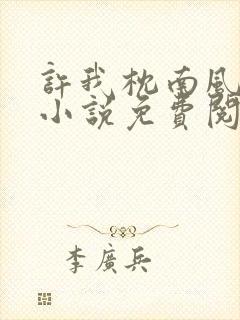 許我枕南風
小說免費閱
李廣兵